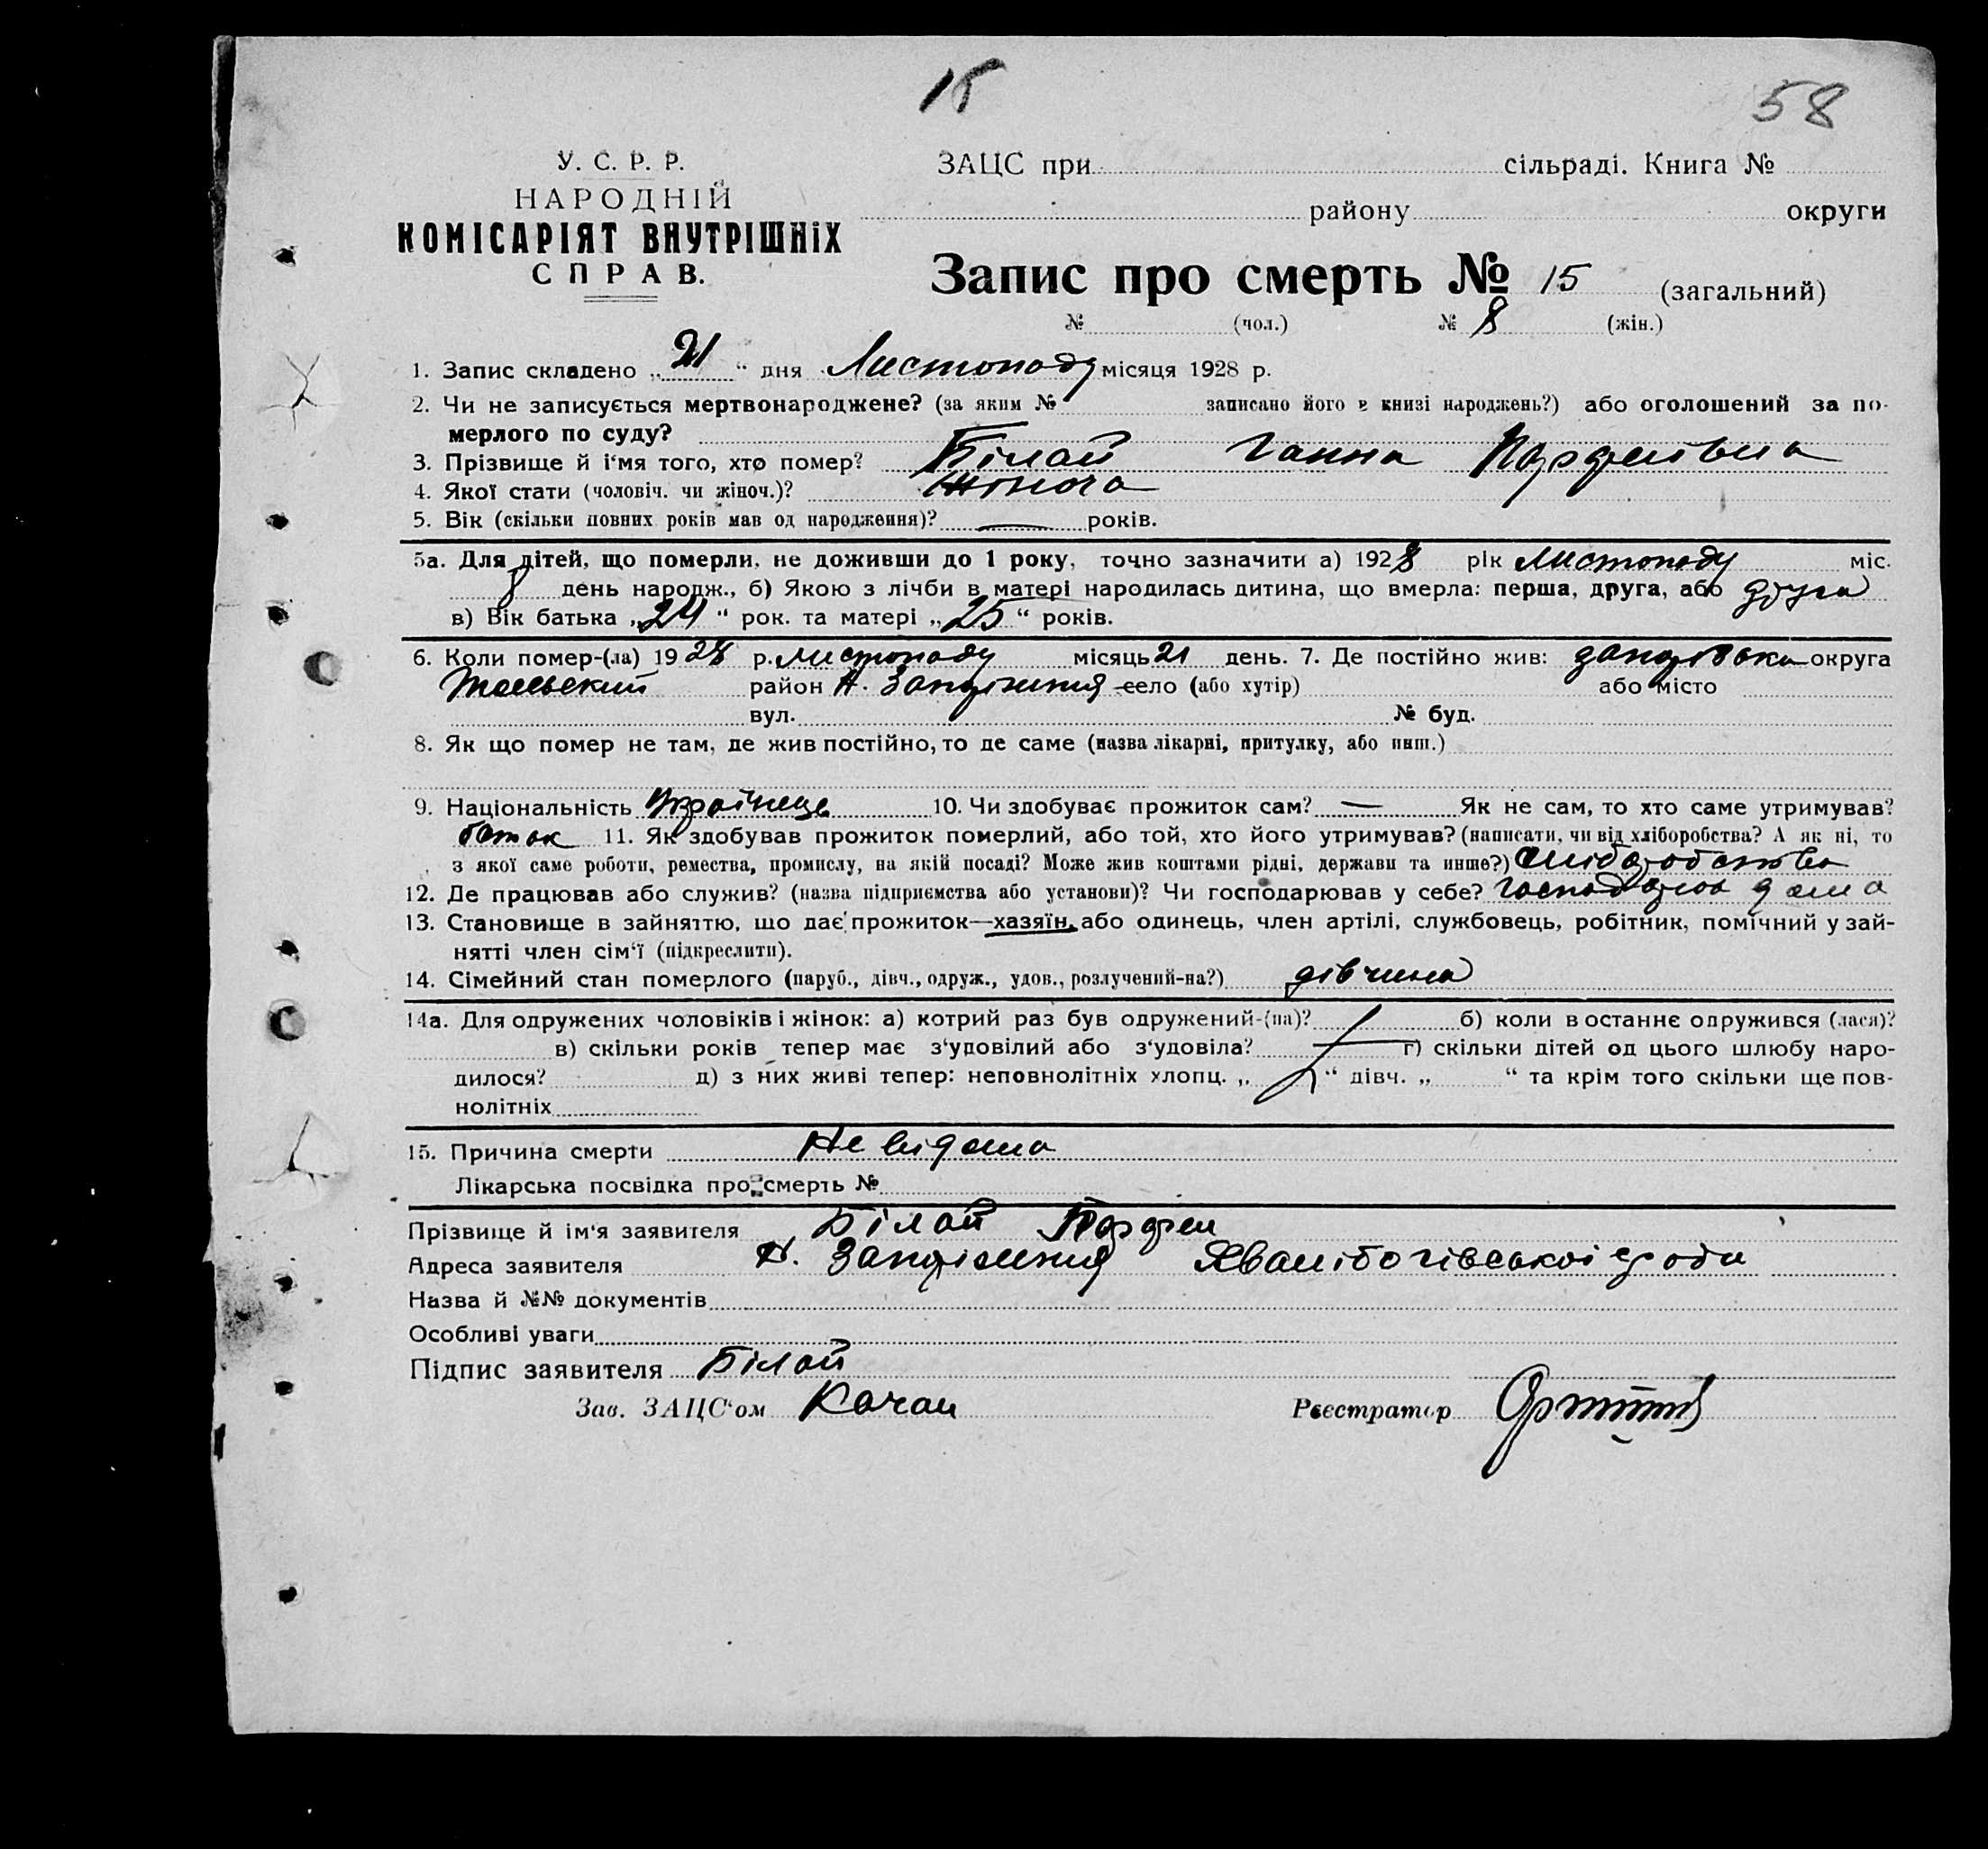 15
58
У. С. Р. Р.
НАРОДНІЙ
КОМІСАРІЯТ ВНУТРІШНІХ
СПРАВ.
ЗАЦС при сільраді. Книга №
району округи
Запис про смерть № 15 (загальний)
№ (чол.) № 8 (жін.)
1. Запис складено „21“ дня Листопаду місяця 1928 р.
2. Чи не записується мертвонароджене? (за яким № записано його в книзі народжень?) або оголошений за по-
мерлого по суду?
3. Прізвище й і'мя того, хто помер? Білай Ганна Парфенівна
4. Якої стати (чоловіч. чи жіноч.)? Жіноча
5. Вік (скільки повних років мав од народження)? — років.
5а. Для дітей, що померли, не доживши до 1 року, точно зазначити а) 1928 рік Листопаду міс.
8 день народж., б) Якою з лічби в матері народилась дитина, що вмерла: перша, друга, або друга
в) Вік батька „24“ рок. та матері „25“ років.
6. Коли помер-(ла) 1928 р. листопаду місяць 21 день. 7. Де постійно жив: округа
район Н. село (або хутір) або місто
вул. № буд.
8. Як що помер не там, де жив постійно, то де саме (назва лікарні, притулку, або инш.)
9. Національність 10. Чи здобуває прожиток сам? — Як не сам, то хто саме утримував?
батьк 11. Як здобував прожиток померлий, або той, хто його утримував? (написати, чи від хліборобства? А як ні, то
з якої саме роботи, ремества, промислу, на якій посаді? Може жив коштами рідні, держави та инше?) хліборобство
12. Де працював або служив? (назва підприємства або установи)? Чи господарював у себе? дома
13. Становище в зайняттю, що дає прожиток—хазяїн, або одинець, член артілі, службовець, робітник, помічний у зай-
нятті член сім'ї (підкреслити).
14. Сімейний стан померлого (паруб., дівч., одруж., удов., розлучений-на?) дівчина
14а. Для одружених чоловіків і жінок: а) котрий раз був одружений-(на)? б) коли в останнє одружився (лася)?
в) скільки років тепер має з'удовілий або з'удовіла? г) скільки дітей од цього шлюбу наро-
дилося? д) з них живі тепер: неповнолітніх хлопц. „ “ дівч. „ “ та крім того скільки ще пов-
нолітніх
15. Причина смерти Не відома
Лікарська посвідка про смерть №
Прізвище й ім'я заявителя Білай Парфен
Адреса заявителя Н.
Назва й №№ документів
Особливі уваги
Підпис заявителя Білай
Зав. ЗАЦС'ом Качан
Реєстратор